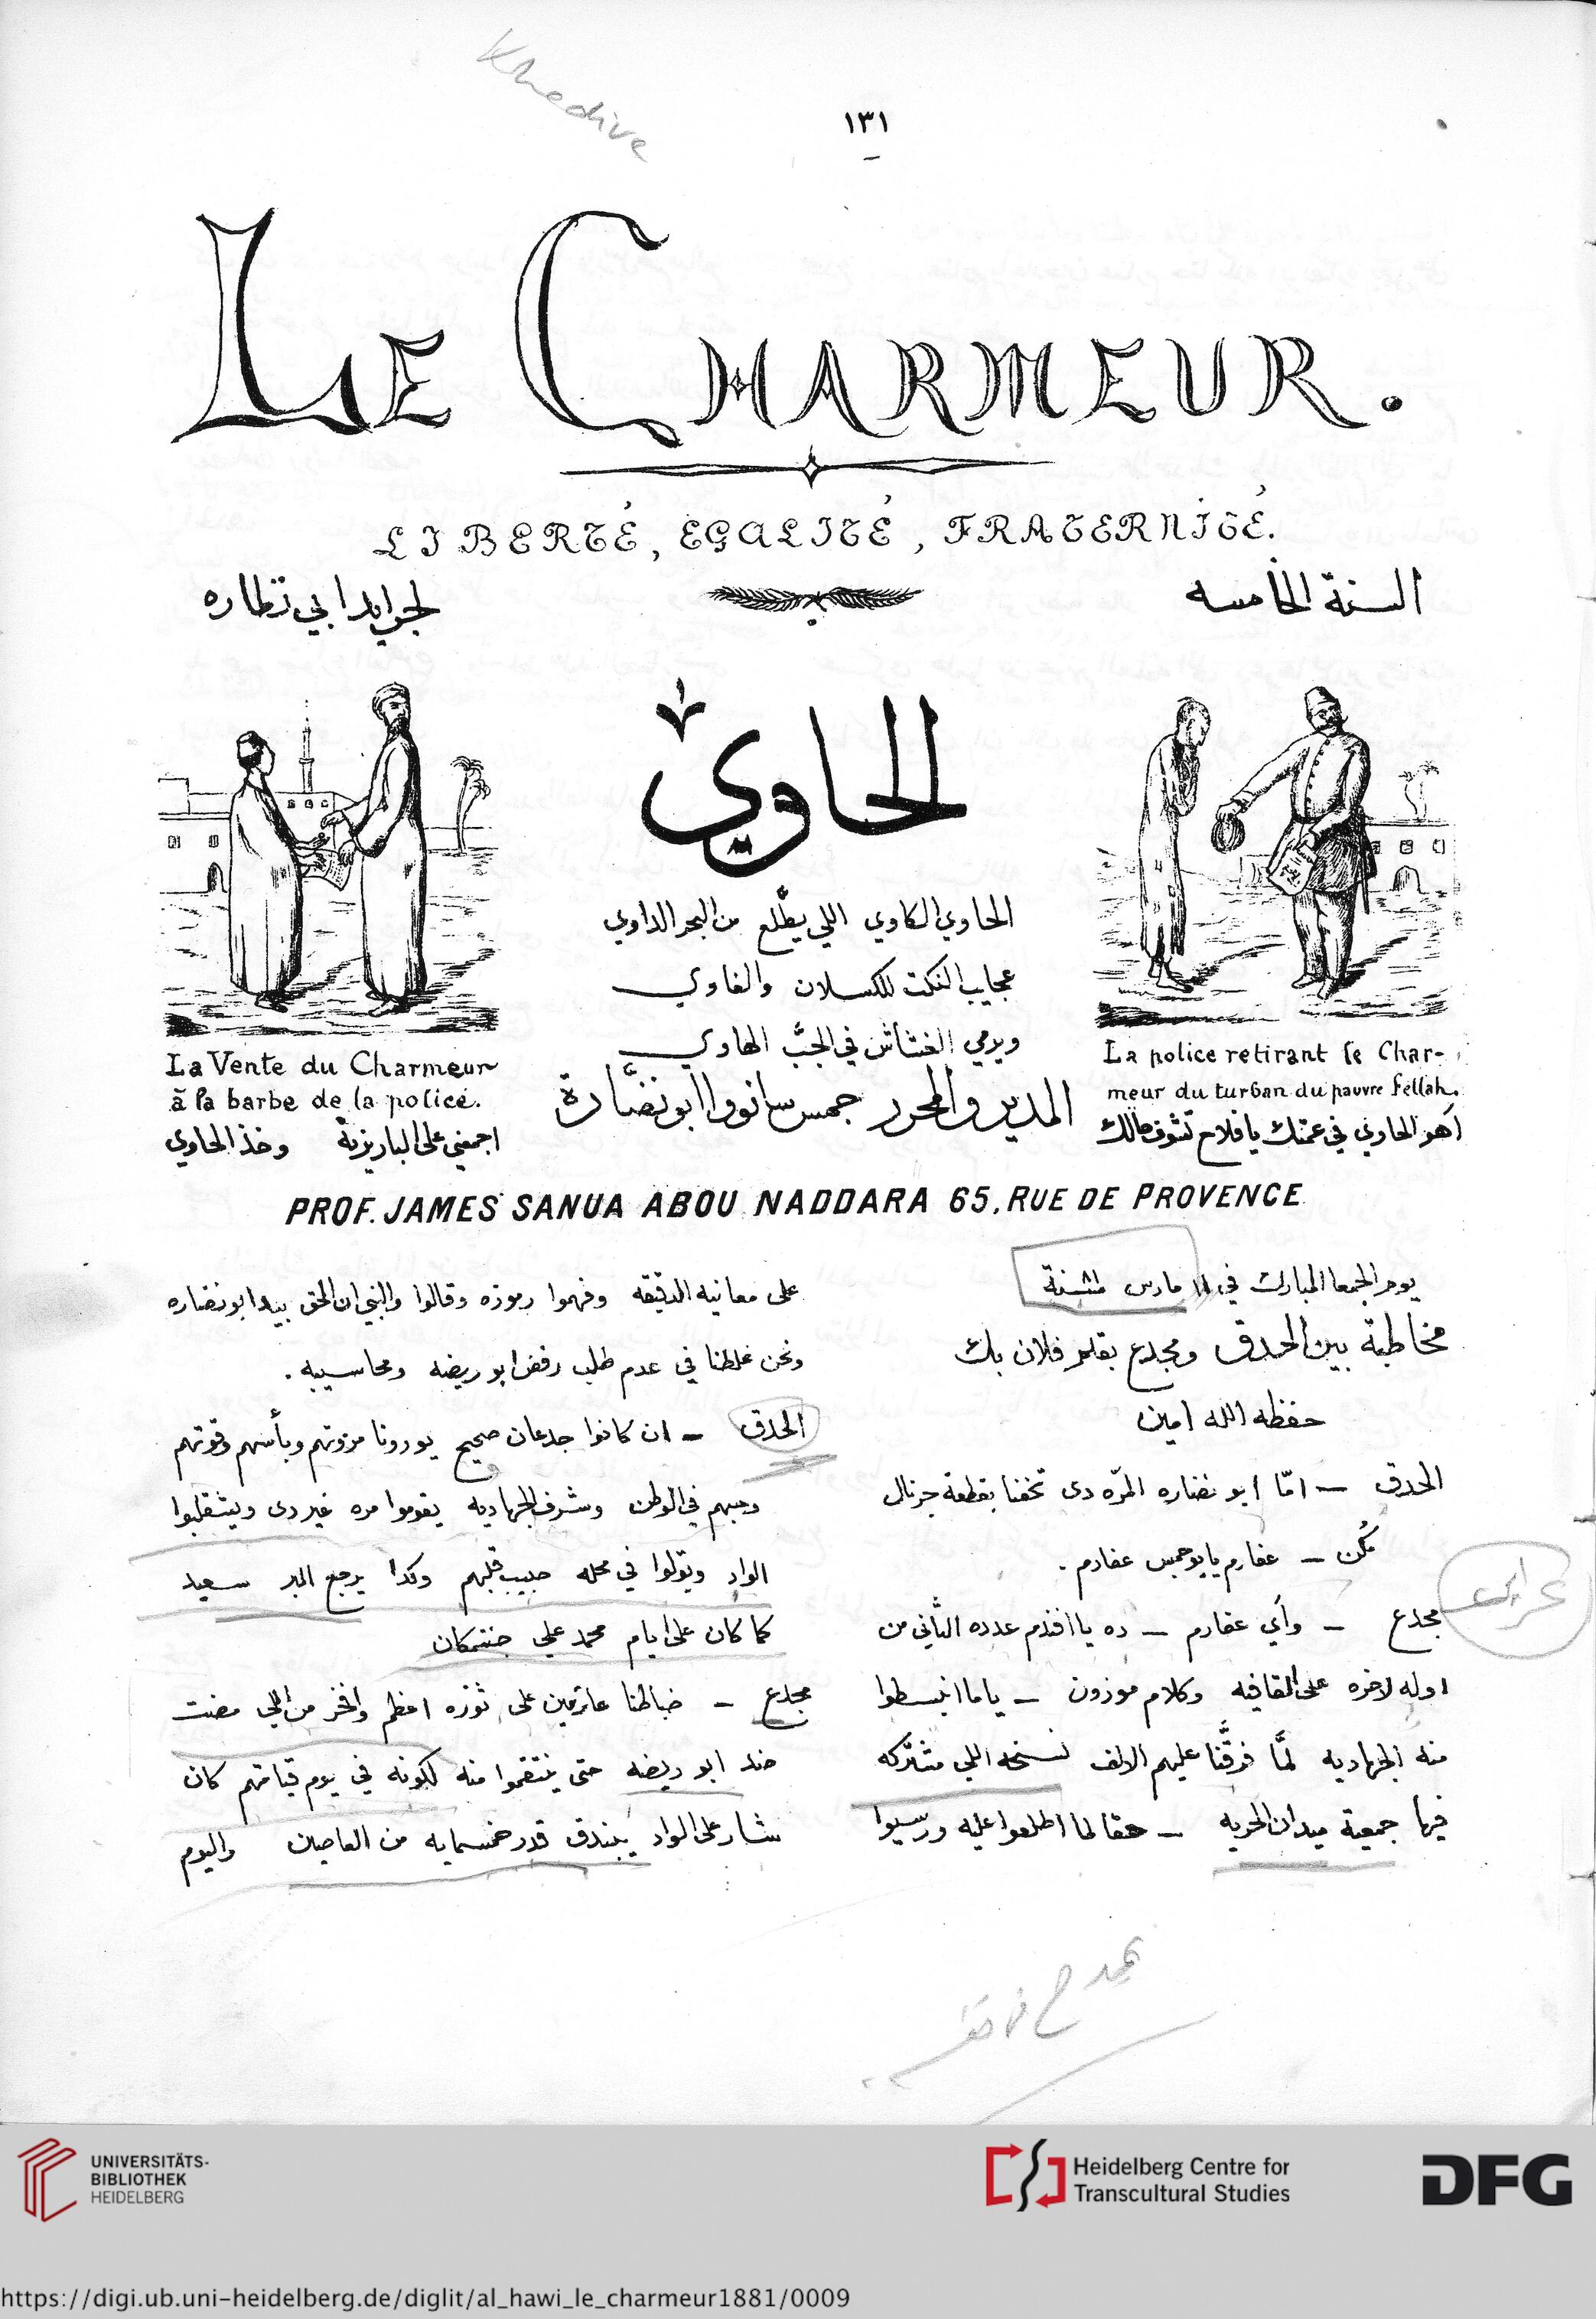 Khedive
١٣١
LE CHARMEUR.
LIBERTÉ, EGALITÉ, FRATERNITÉ.
السنة الخامسه
لجرايد ابي نظاره
الحاوي
الحاوي الكاوي اللي يطّلع من البحر الداوي
عجايب النكت للكسلان والغاوي
ويرمي الغشاش في الجبّ الهاوي
المدير والمحرر جمس سانووا ابو نضّارة
La Vente du Charmeur
à la barbe de la police.
اجمعيني على الباريزية وخذ الحاوي
La police retirant le Char-
meur du turban du pauvre fellah.
اهو الحاوي في عمتك يا فلاح تشوف حالك
PROF. JAMES SANUA ABOU NADDARA 65, RUE DE PROVENCE
يوم الجمعا المبارك في ١١ مارس سنة ٨١
مخاطبة بين الحدق ومجدع بقلم فلان بك
حفظه الله امين
الحدق — امّا ابو نضاره المرّه دى تحفنا بقطعة جرنال
عفارم يا بو جمس عفارم .
مجدع — وأي عفارم — ده يا افندم عدده الثاني من
اوله لاخره على القافيه وكلام موزون — ياما انبسطوا
منه الجهاديه لمّا فرقّنا عليهم الالف نسخه اللي مشتركه
فيها جمعية ميدان الحريه — حقا لما اطلعوا عليه ورسيوا
على معانيه الدقيقه وفهموا رموزه وقالوا والنبي ان الحق بيد ابو نضاره
ونحن غلطنا في عدم طلب رفض ابو ريضه ومحاسيبه .
الحدق — ان كانوا جدعان صحيح يورونا مروتهم وبأسهم وقوتهم
وحبهم في الوطن وشرف الجهاديه يقوموا مره غير دى ويشقلبوا
الواد ويولوا في محله حبيب قلبهم وكدا يرجع البر سعيد
كما كان على ايام محمد علي جنتمكان
مجدع — ضباطنا عازمين على ثوره اعظم وافخر من اللي مضت
ضد ابو ريضه حتى ينتقموا منه لكونه في يوم قيامتهم كان
شار على الواد يبندق قدر خمسمايه من العاصين واليوم
UNIVERSITÄTS-
BIBLIOTHEK
HEIDELBERG
Heidelberg Centre for
Transcultural Studies
DFG
https://digi.ub.uni-heidelberg.de/diglit/al_hawi_le_charmeur1881/0009